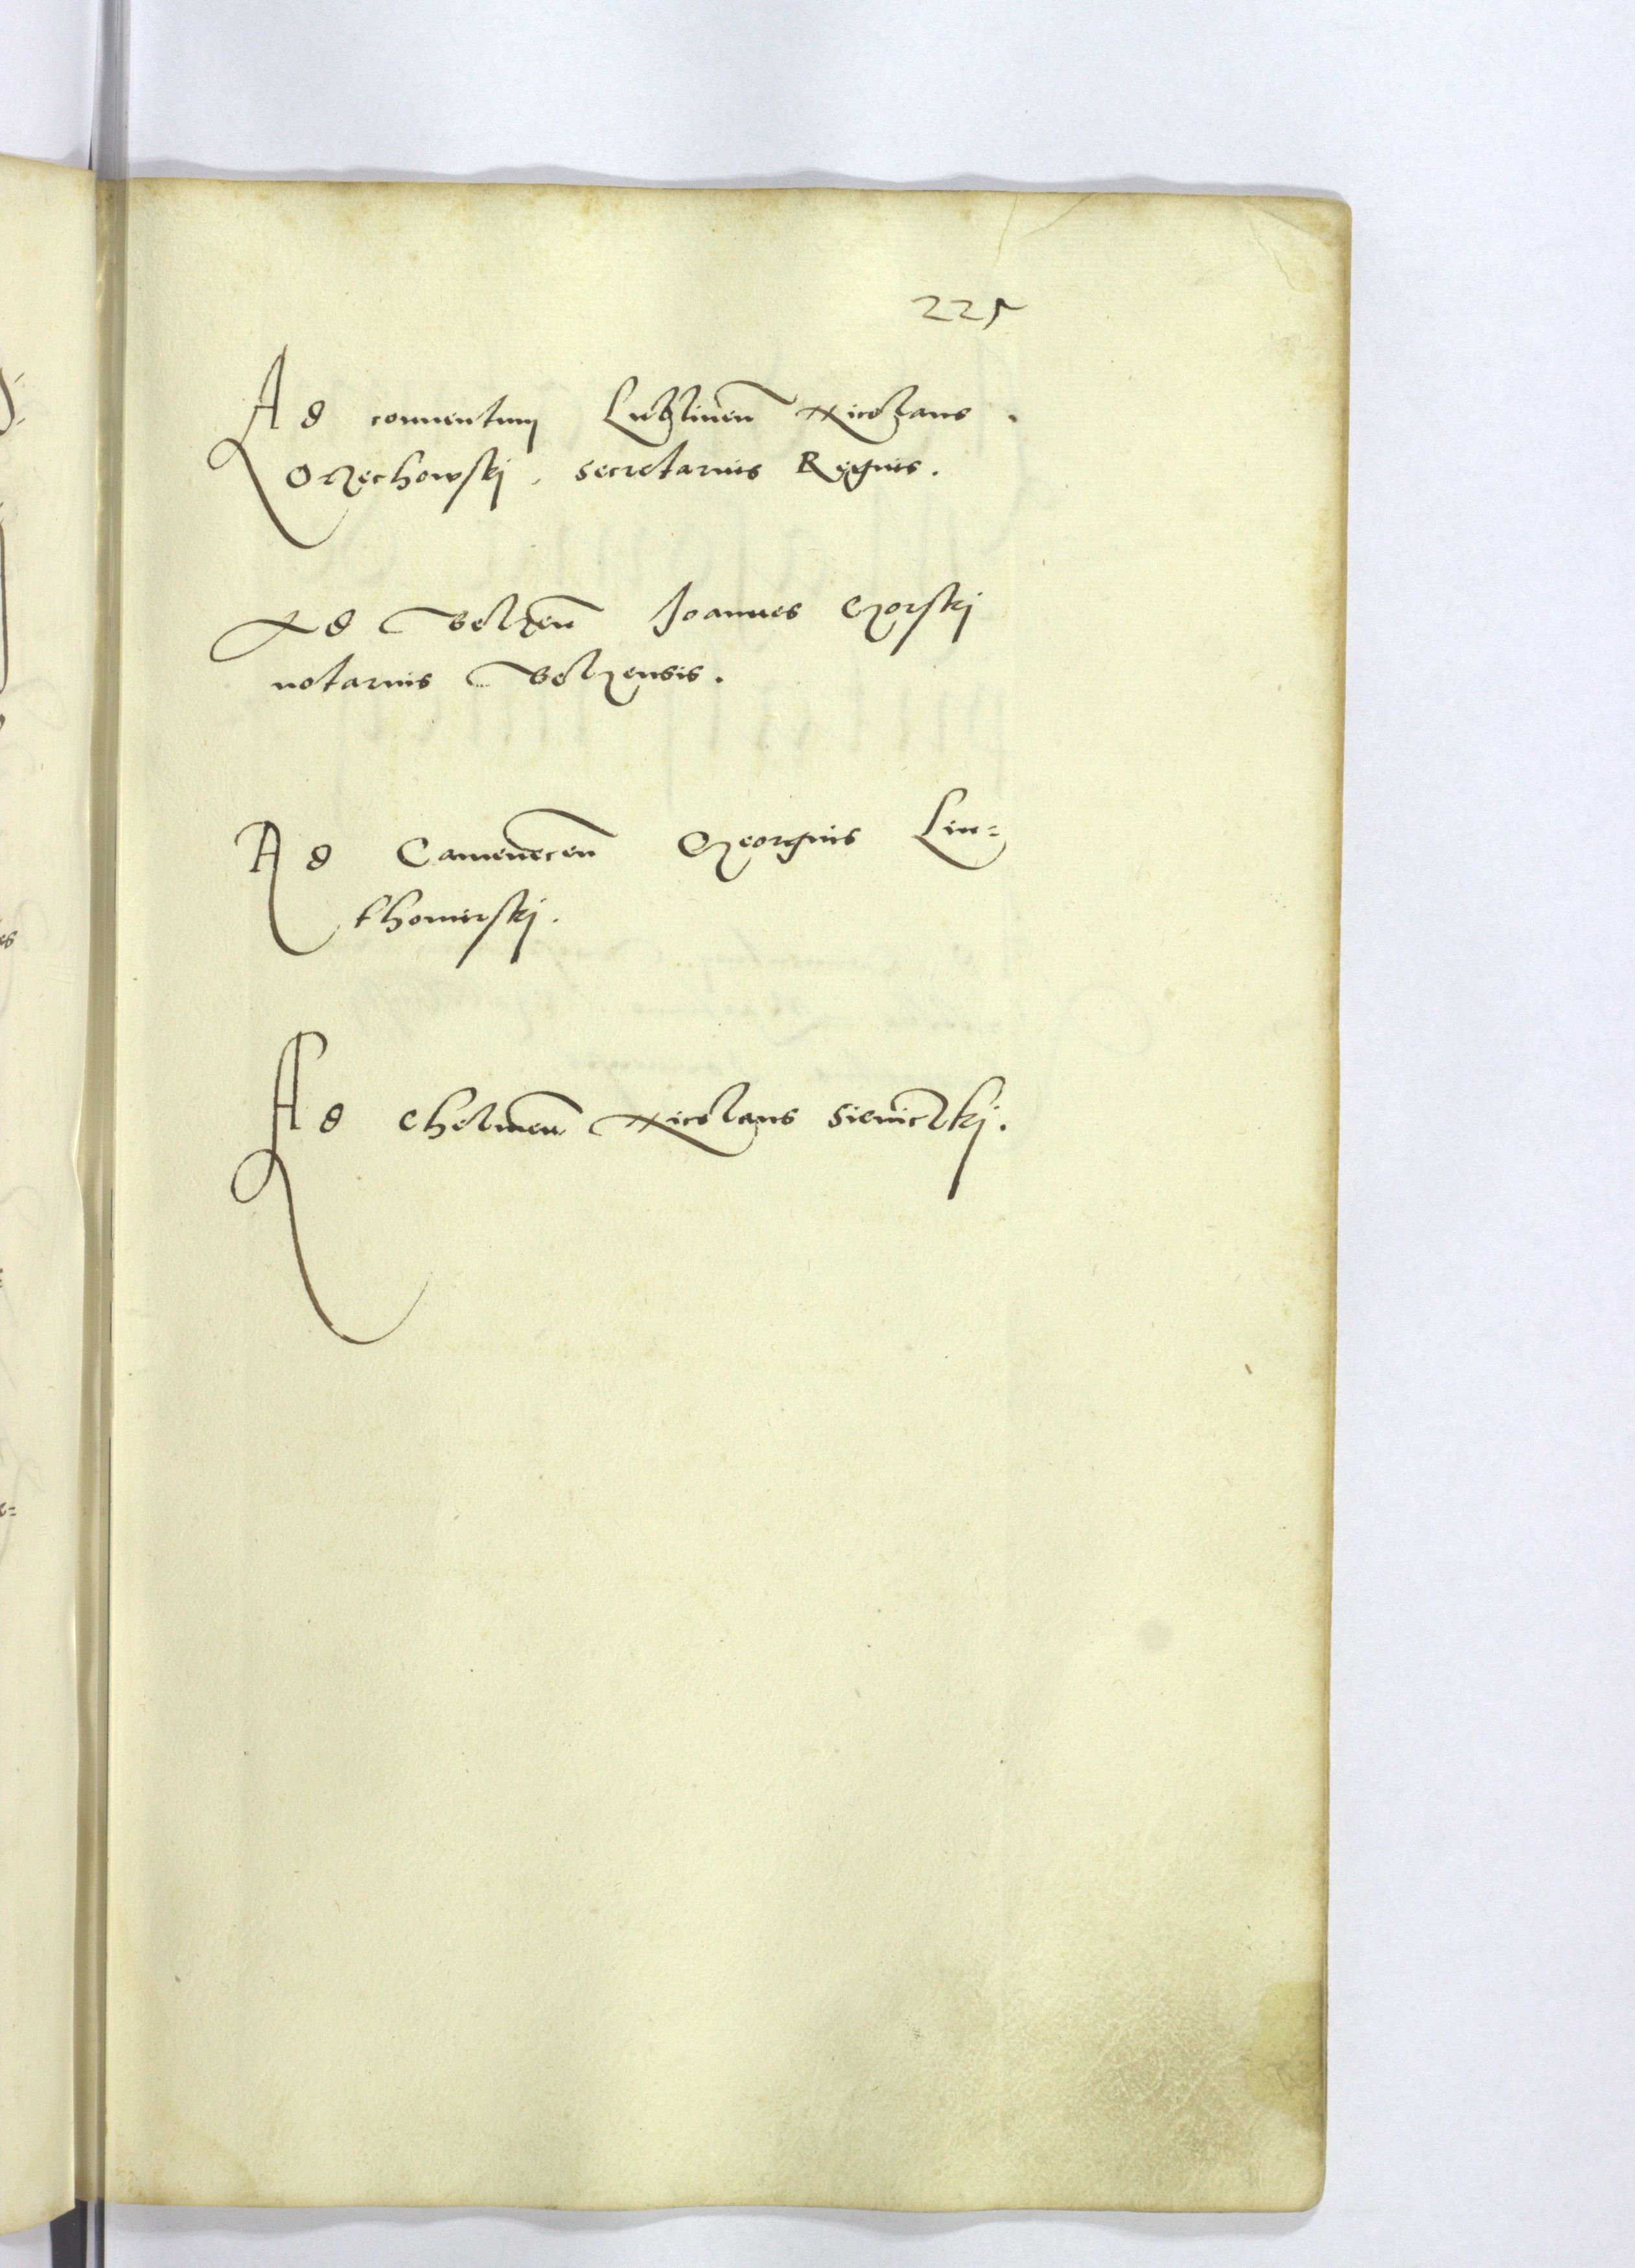 225
Ad conuentum Lublinen Nicolaus
Orzechowski, secretarius Regius.
Ad Belzen Joannes Gorski
notarius Belzensis.
Ad Camenecen Georgius Lin=
thomirski.
Ad Chelmen Nicolaus Sieniczki.